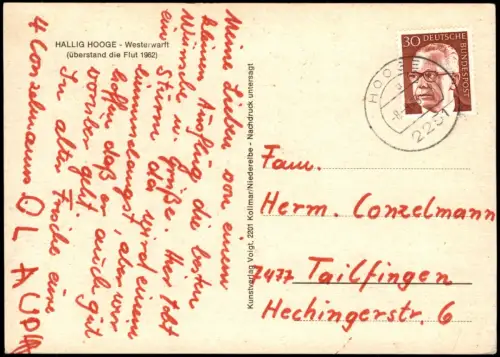 HALLIG HOOGE - Westerwarft
(überstand die Flut 1962)
Meine Lieben von einem
kleinen Ausflug die besten
Wünsche u. Grüße. Hier tobt
ein Sturm da wird einem
himmelangst, aber wir
hoffen daß er auch gut
vorüber geht.
In alter Frische eure
4 Conzelmanns
Kunstverlag Voigt, 2201 Kollmar/Niederelbe - Nachdruck untersagt
30
DEUTSCHE
BUNDESPOST
HOOGE
2251
Fam.
Herm. Conzelmann
7477 Tailfingen
Hechingerstr. 6